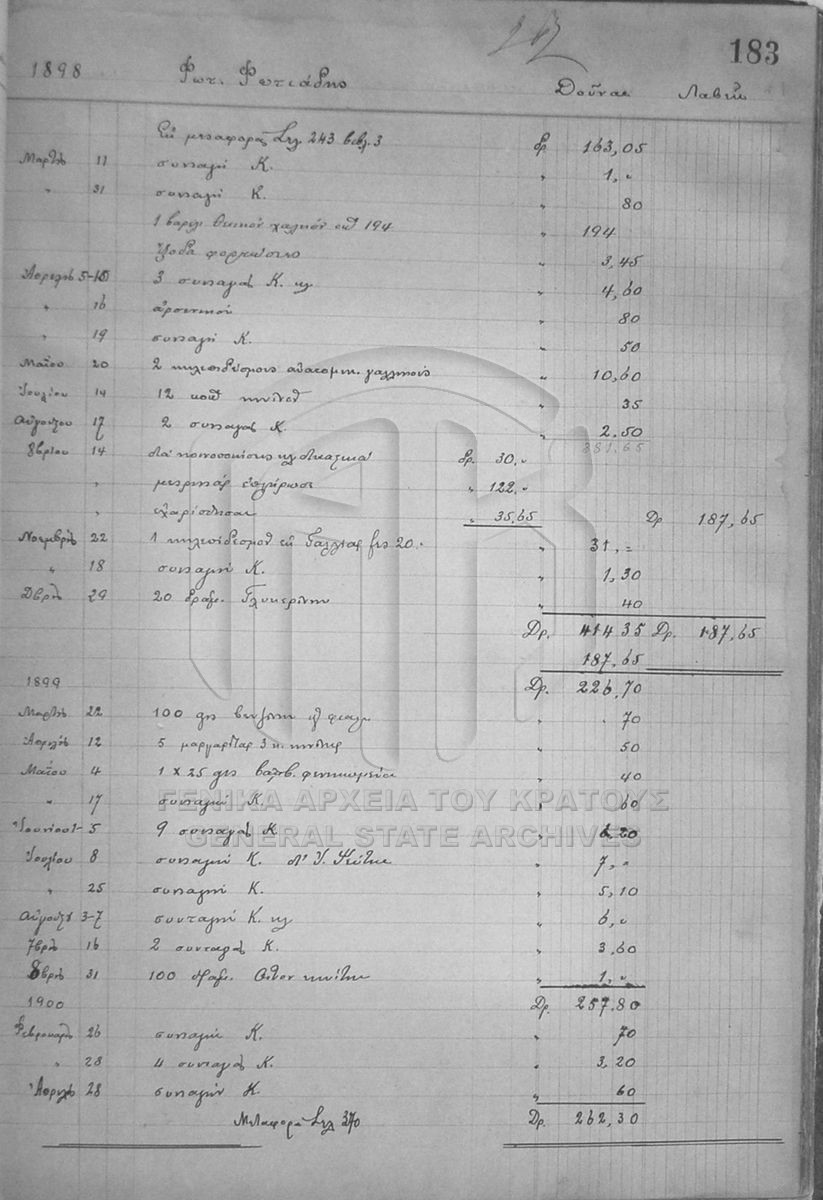 183
1898 Φωτ. Φωτιάδης Δοῦναι Λαβεῖν
Ἐκ μεταφορᾶς Σελ. 243 βιβλ. 3 Δρ 163,05
Μαρτίου 11 συνταγὴ Κ. " 1,"
" 31 συνταγὴ Κ. " 80
1 βαρέλ. θειικὸν χαλκόν 194 " 194
Σόδα " 3,45
Ἀπριλίου 5-10 3 συνταγαὶ Κ. κλ " 4,60
" 16 ἀρσενικοῦ " 80
" 19 συνταγὴ Κ. " 50
Μαΐου 20 2 γαλλικούς " 10,60
Ἰουλίου 14 12 " 35
Αὐγούστου 17 2 συνταγαὶ Κ. " 2.50
381.65
8βρίου 14 διὰ κλ δικαστικά δρ. 30,"
" μετρητὰ ἐπλήρωσε " 122,"
" " 35,65 Δρ 187,65
Νοεμβρίου 22 1 ἐκ Γαλλίας 20 " 31,=
" 18 συνταγὴν Κ. " 1,30
Δβρίου 29 20 δραμ. Γλυκερίνην " 40
Δρ. 414 35 Δρ. 187,65
187,65
1899 Δρ. 226,70
Μαρτίου 22 100 βενζίνην " 70
Ἀπριλίου 12 5 " 50
Μαΐου 4 1 x 25 " 40
" 17 συνταγὴν Κ. " 60
Ἰουνίου 1-5 9 συνταγαὶ Κ " 6,20
Ἰουλίου 8 συνταγὴν Κ. " 7,"
" 25 συνταγὴν Κ. " 5,10
Αὐγούστου 3-7 συνταγὴν Κ. κλ " 6,"
7βρίου 16 2 συνταγαὶ Κ. " 3,60
8βρίου 31 100 δραμ. " 1,"
1900 Δρ. 257,80
Φεβρουαρίου 26 συνταγὴν Κ. " 70
" 28 4 συνταγαὶ Κ. " 3,20
Ἀπριλίου 28 συνταγὴν Κ. " 60
Μεταφορὰ Σελ 370 Δρ. 262,30
ΓΕΝΙΚΑ ΑΡΧΕΙΑ ΤΟΥ ΚΡΑΤΟΥΣ
GENERAL STATE ARCHIVES